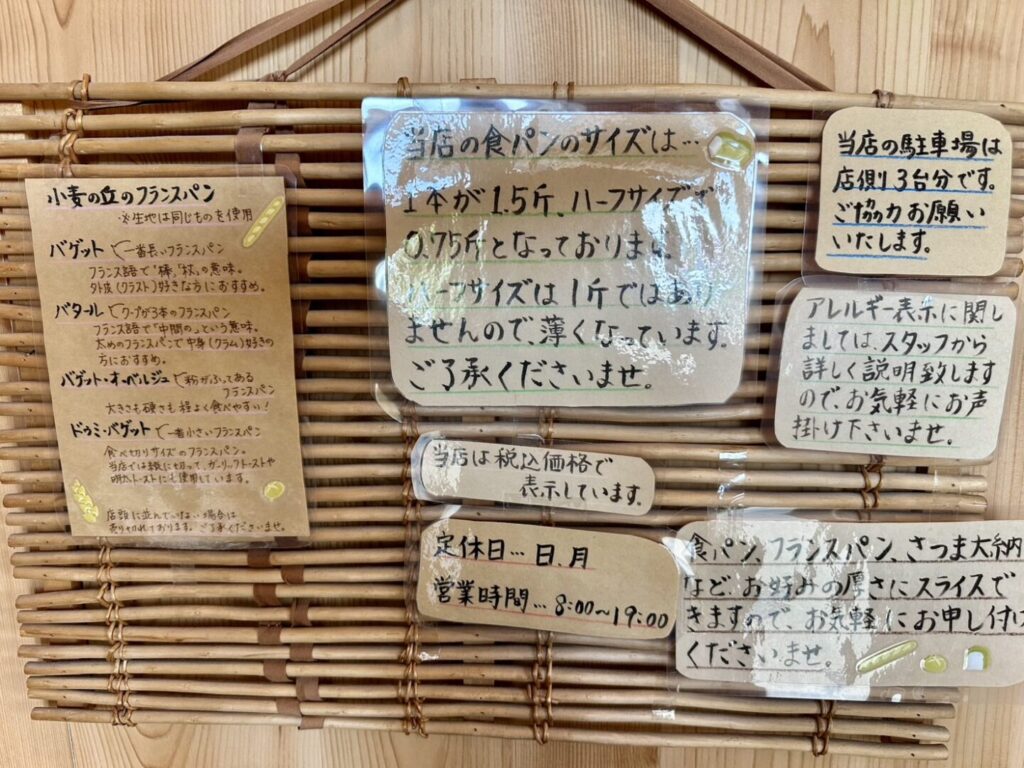 小麦の丘のフランスパン
※生地は同じものを使用
バゲット ←一番長いフランスパン
フランス語で「棒」、「杖」の意味。
外皮(クラスト)好きな方におすすめ。
バタール ←クープが3本のフランスパン
フランス語で「中間の」という意味。
太めのフランスパンで中身(クラム)好きの
方におすすめ。
バゲット・オ・ベルジュ ←粉がふってある
フランスパン
大きさも硬さも程よく食べやすい!
ドゥミ・バゲット ←一番小さいフランスパン
食べ切りサイズのフランスパン。
当店では縦に切って、ガーリックトーストや
明太トーストにも使用しています。
店頭に並んでいない場合は
売り切れております。ご了承くださいませ。
当店の食パンのサイズは…
1本が1.5斤、ハーフサイズで
0.75斤となっております。
ハーフサイズは1斤ではあり
ませんので、薄くなっています。
ご了承くださいませ。
当店の駐車場は
店側3台分です。
ご協力お願い
いたします。
アレルギー表示に関し
ましては、スタッフから
詳しく説明致します
ので、お気軽にお声
掛け下さいませ。
当店は税込価格で
表示しています。
定休日…日、月
営業時間…8:00〜19:00
食パン、フランスパン、さつま大納
など、お好みの厚さにスライスで
きますので、お気軽にお申し付け
くださいませ。